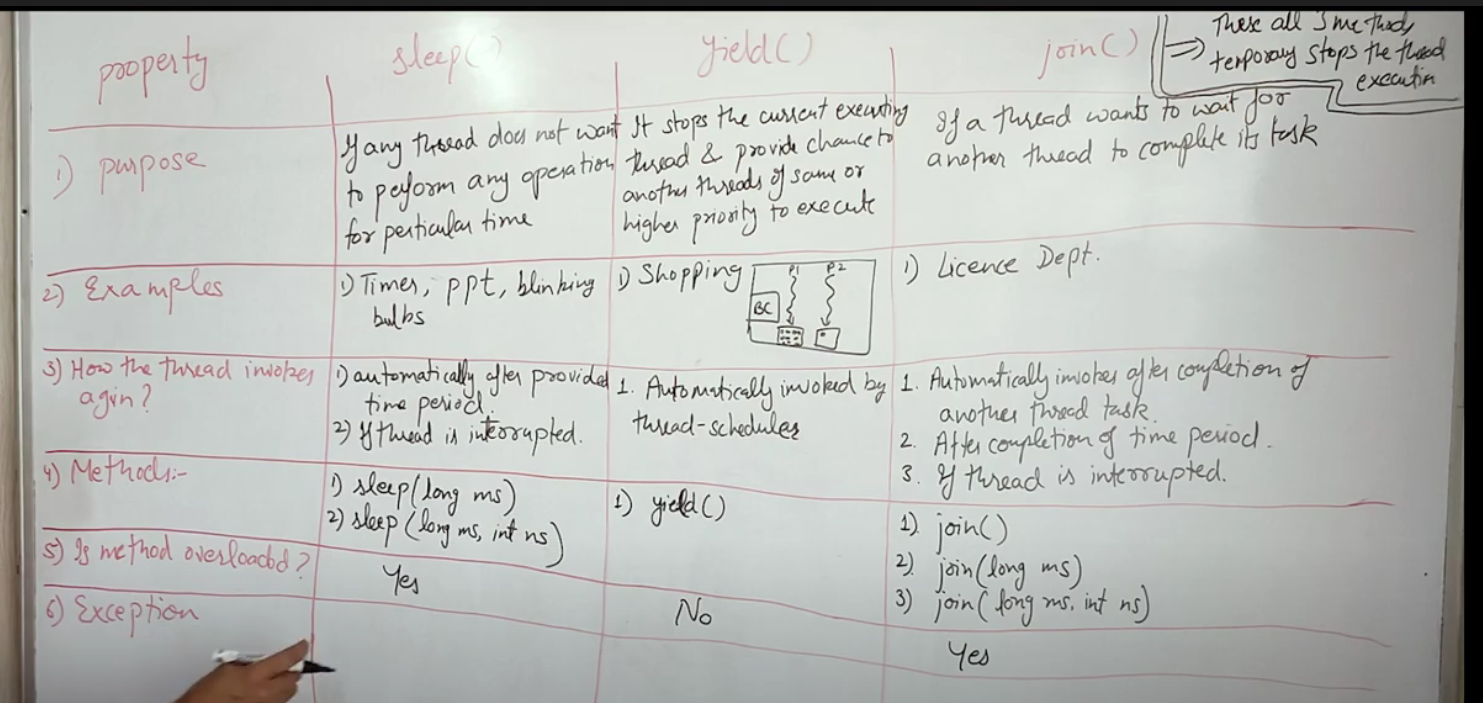 property
sleep()
yield()
join()
These all 3 methods
⇒ temporary stops the thread
execution
1) purpose
If any thread does not want
to perform any operation
for perticular time
It stops the current executing
thread & provide chance to
another threads of same or
higher priority to execute
If a thread wants to wait for
another thread to complete its task
2) Examples
1) Timer, ppt, blinking
bulbs
1) Shopping
P1 P2
BC
1) Licence Dept.
3) How the thread invokes
agin?
1) automatically after provided
time period.
2) If thread is interrupted.
1. Automatically invoked by
thread-scheduler
1. Automatically invokes after completion of
another thread task.
2. After completion of time period.
3. If thread is interrupted.
4) Methods:-
1) sleep(long ms)
2) sleep (long ms, int ns)
1) yield()
1) join()
2) join(long ms)
3) join(long ms, int ns)
5) Is method overloaded?
Yes
No
Yes
6) Exception